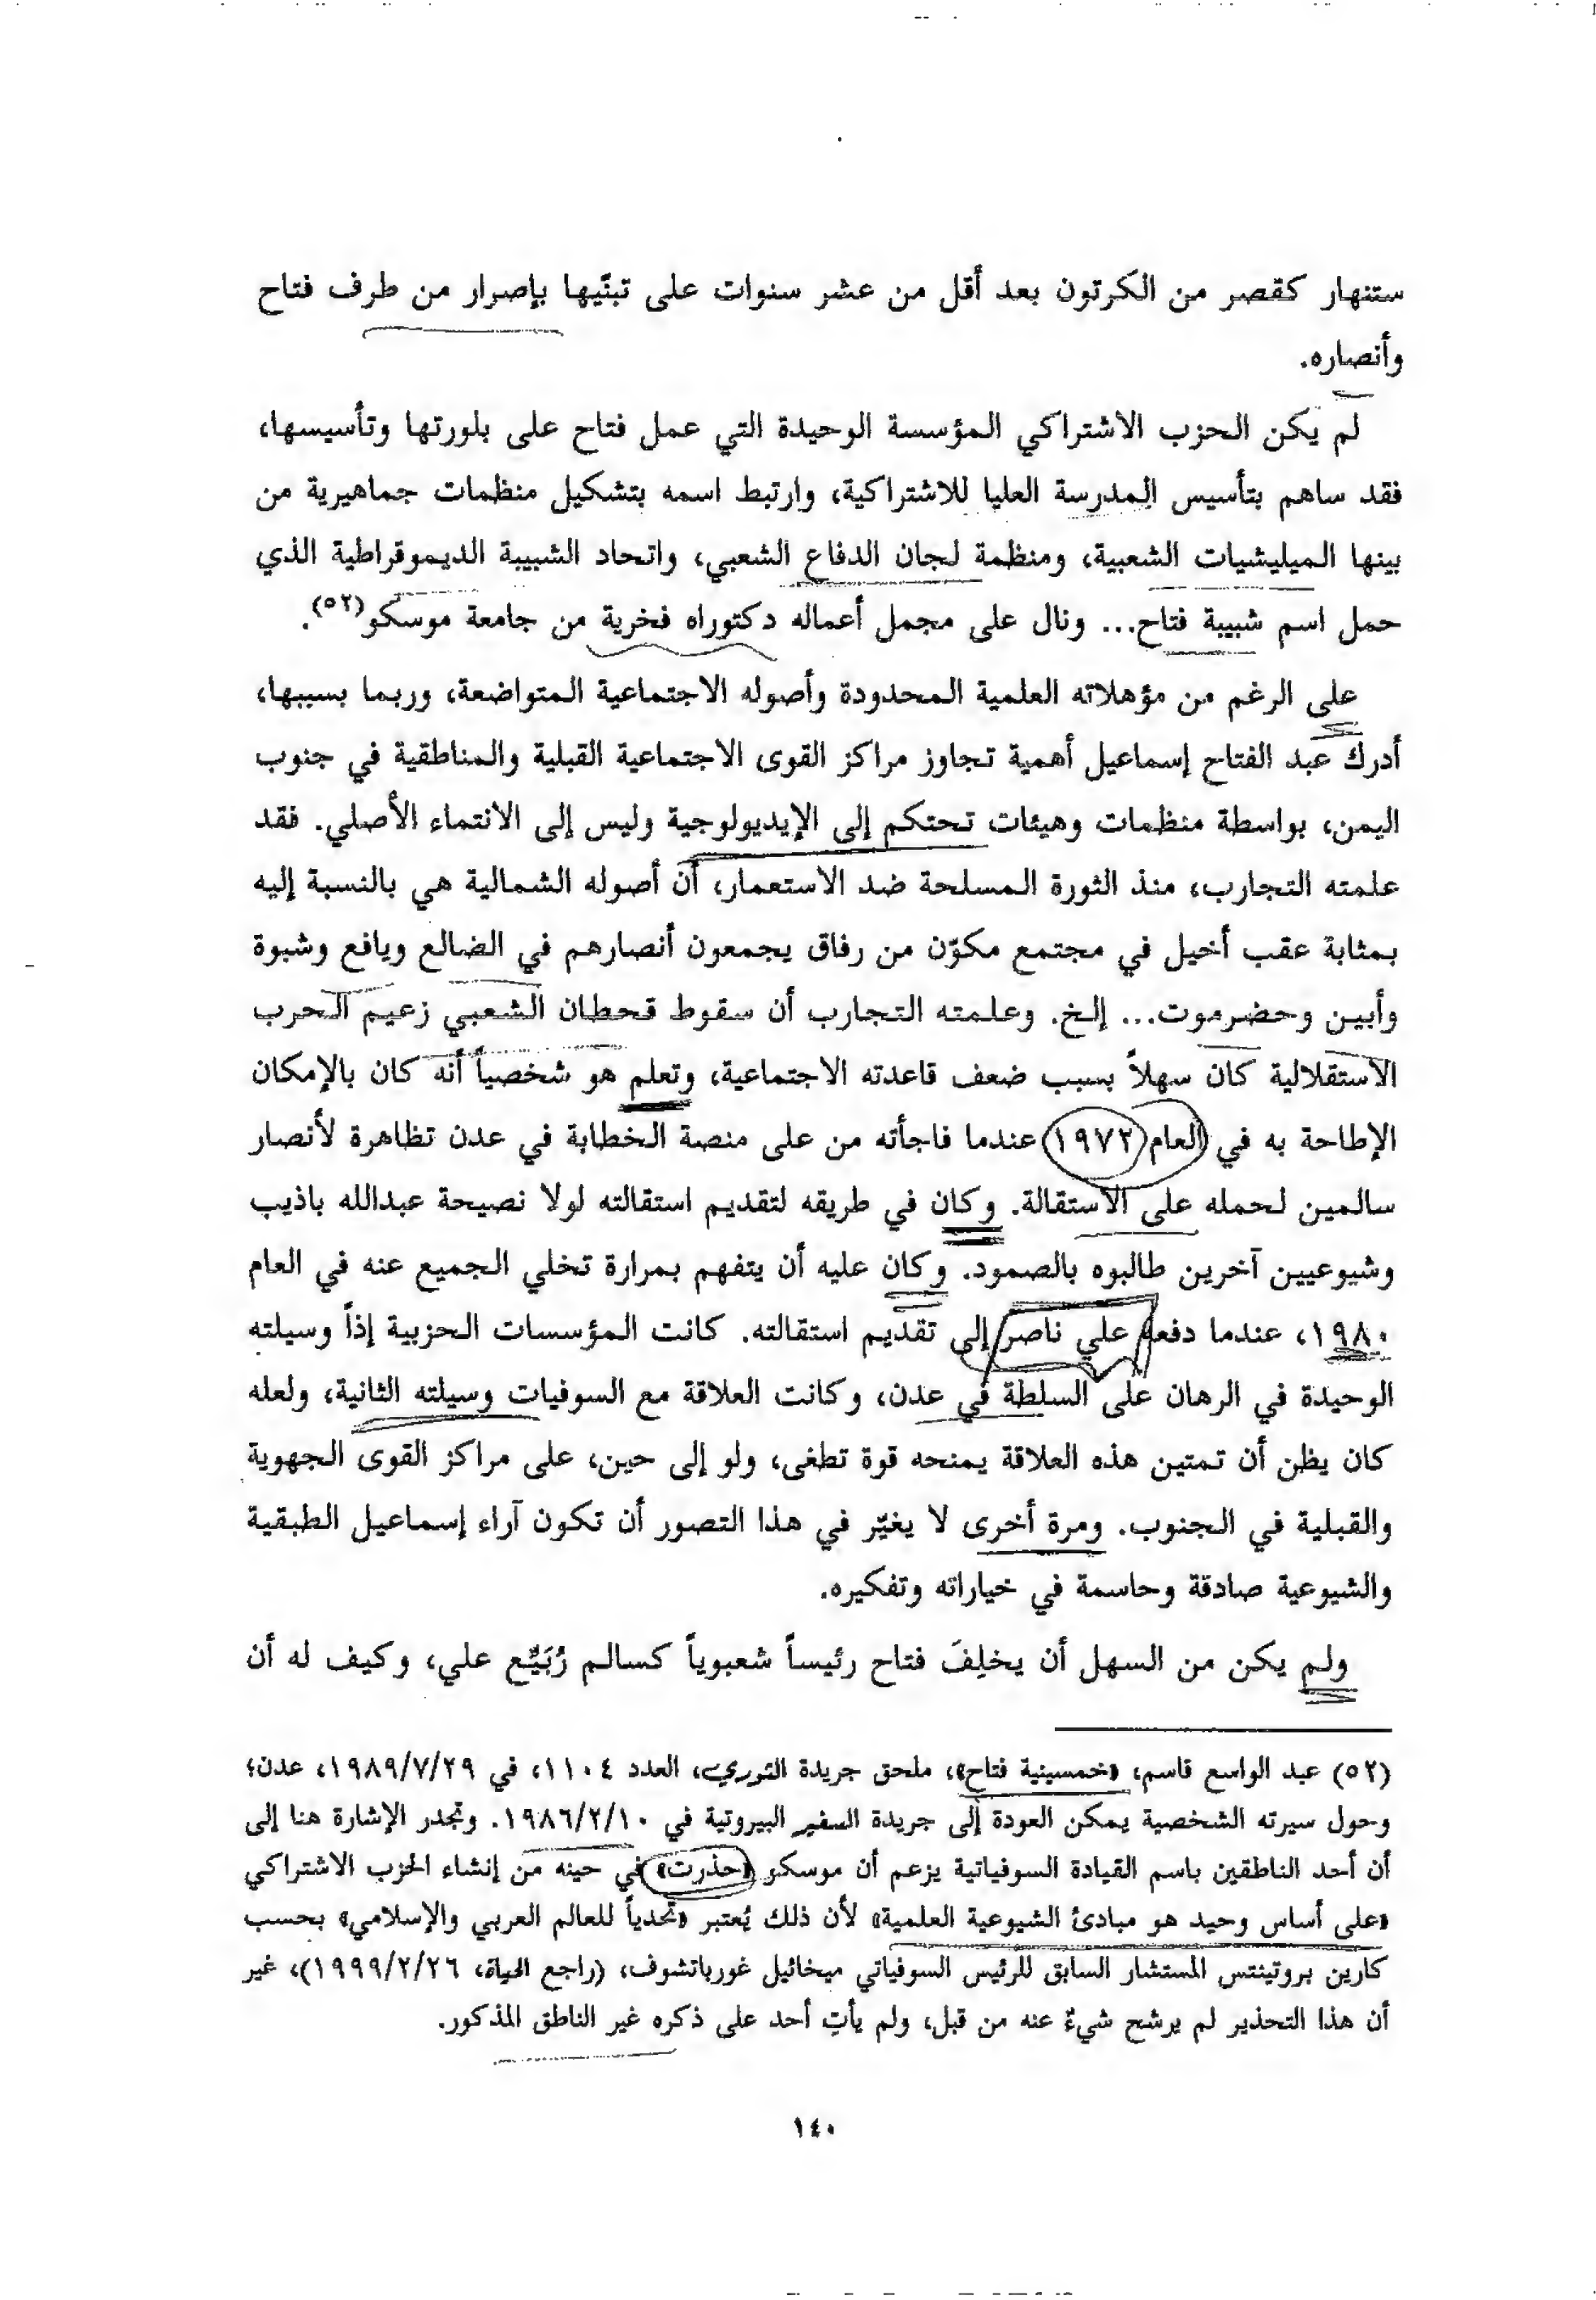 ستنهار كقصر من الكرتون بعد أقل من عشر سنوات على تبنّيها بإصرار من طرف فتاح
وأنصاره.
لم يكن الحزب الاشتراكي المؤسسة الوحيدة التي عمل فتاح على بلورتها وتأسيسها،
فقد ساهم بتأسيس المدرسة العليا للاشتراكية، وارتبط اسمه بتشكيل منظمات جماهيرية من
بينها الميليشيات الشعبية، ومنظمة لجان الدفاع الشعبي، واتحاد الشبيبة الديموقراطية الذي
حمل اسم شبيبة فتاح... ونال على مجمل أعماله دكتوراه فخرية من جامعة موسكو(٥٢).
على الرغم من مؤهلاته العلمية المحدودة وأصوله الاجتماعية المتواضعة، وربما بسببها،
أدرك عبد الفتاح إسماعيل أهمية تجاوز مراكز القوى الاجتماعية القبلية والمناطقية في جنوب
اليمن، بواسطة منظمات وهيئات تحتكم إلى الإيديولوجية وليس إلى الانتماء الأصلي. فقد
علمته التجارب، منذ الثورة المسلحة ضد الاستعمار، أن أصوله الشمالية هي بالنسبة إليه
بمثابة عقب أخيل في مجتمع مكوّن من رفاق يجمعون أنصارهم في الضالع ويافع وشبوة
وأبين وحضرموت... إلخ. وعلمته التجارب أن سقوط قحطان الشعبي زعيم الحرب
الاستقلالية كان سهلاً بسبب ضعف قاعدته الاجتماعية، وتعلم هو شخصياً أنه كان بالإمكان
الإطاحة به في العام ١٩٧٢ عندما فاجأته من على منصة الخطابة في عدن تظاهرة لأنصار
سالمين لحمله على الاستقالة. وكان في طريقه لتقديم استقالته لولا نصيحة عبدالله باذيب
وشيوعيين آخرين طالبوه بالصمود. وكان عليه أن يتفهم بمرارة تخلي الجميع عنه في العام
١٩٨٠، عندما دفعه علي ناصر إلى تقديم استقالته. كانت المؤسسات الحزبية إذاً وسيلته
الوحيدة في الرهان على السلطة في عدن، وكانت العلاقة مع السوفيات وسيلته الثانية، ولعله
كان يظن أن تمتين هذه العلاقة يمنحه قوة تطغى، ولو إلى حين، على مراكز القوى الجهوية
والقبلية في الجنوب. ومرة أخرى لا يغيّر في هذا التصور أن تكون آراء إسماعيل الطبقية
والشيوعية صادقة وحاسمة في خياراته وتفكيره.
ولم يكن من السهل أن يخلِفَ فتاح رئيساً شعبوياً كسالم رُبَيِّع علي، وكيف له أن
(٥٢) عبد الواسع قاسم، «خمسينية فتاح»، ملحق جريدة الثوري، العدد ١١٠٤، في ١٩٨٩/٧/٢٩، عدن؛
وحول سيرته الشخصية يمكن العودة إلى جريدة السفير البيروتية في ١٩٨٦/٢/١٠. وتجدر الإشارة هنا إلى
أن أحد الناطقين باسم القيادة السوفياتية يزعم أن موسكو «حذرت» في حينه من إنشاء الحزب الاشتراكي
«على أساس وحيد هو مبادئ الشيوعية العلمية» لأن ذلك يُعتبر «تحدياً للعالم العربي والإسلامي» بحسب
كارين بروتينتس المستشار السابق للرئيس السوفياتي ميخائيل غورباتشوف، (راجع الحياة، ١٩٩٩/٢/٢٦)، غير
أن هذا التحذير لم يرشح شيءٌ عنه من قبل، ولم يأتِ أحد على ذكره غير الناطق المذكور.
١٤٠